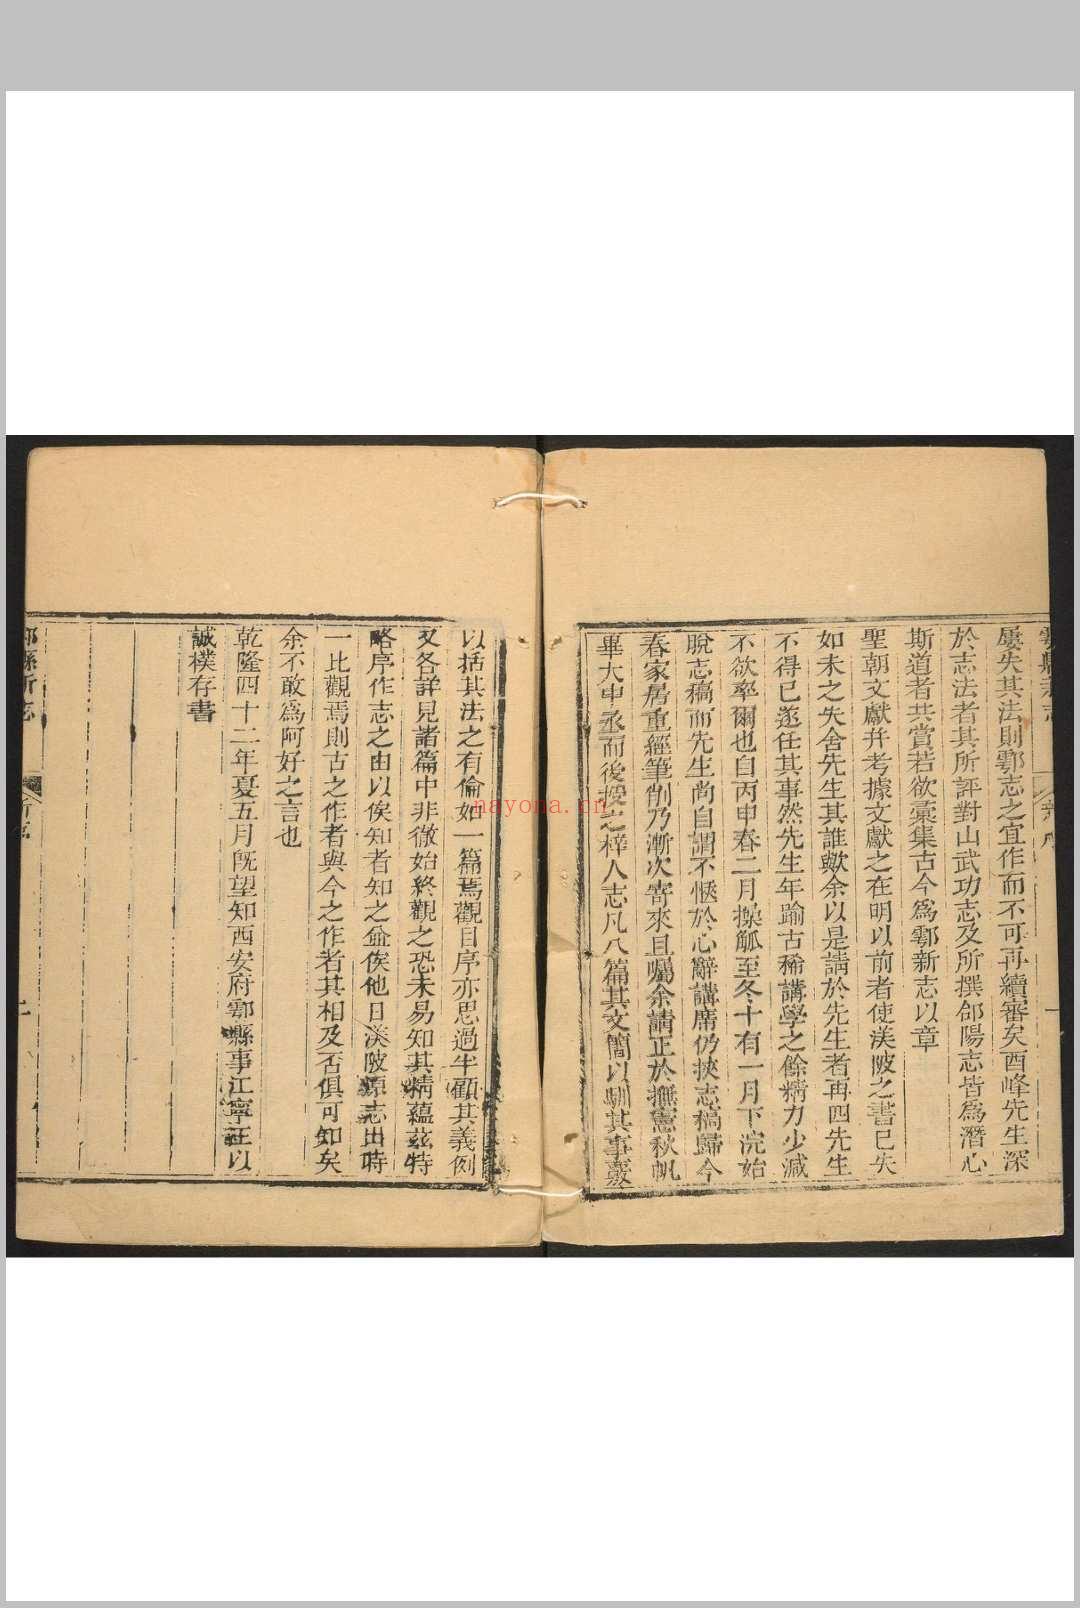 屢失其法則鄠志之宜作而不可再續審矣酉峰先生深
於志法者其所評對山武功志及所撰郃陽志皆為潛心
斯道者共賞若欲彙集古今為鄠新志以章
聖朝文獻并考據文獻之在明以前者使渼陂之書已失
如未之失舍先生其誰歟余以是請於先生者再四先生
不得已遂任其事然先生年踰古稀講學之餘精力少減
不欲率爾也自丙申春二月操觚至冬十有一月下浣始
脫志稿而先生尚自謂不愜於心辭講席仍挾志稿歸今
春家居重經筆削乃漸次寄來且囑余請正於撫憲秋帆
畢大中丞而後授之梓人志凡八篇其文簡以馴其事覈
以括其法之有倫如一篇焉觀目序亦思過半顧其義例
又各詳見諸篇中非徹始終觀之恐未易知其精蘊茲特
略序作志之由以俟知者知之並俟他日渼陂原志出時
一比觀焉則古之作者與今之作者其相及否俱可知矣
余不敢為阿好之言也
乾隆四十二年夏五月旣望知西安府鄠縣事江寧汪以
誠樸存書
鄠縣新志
nayona.cn